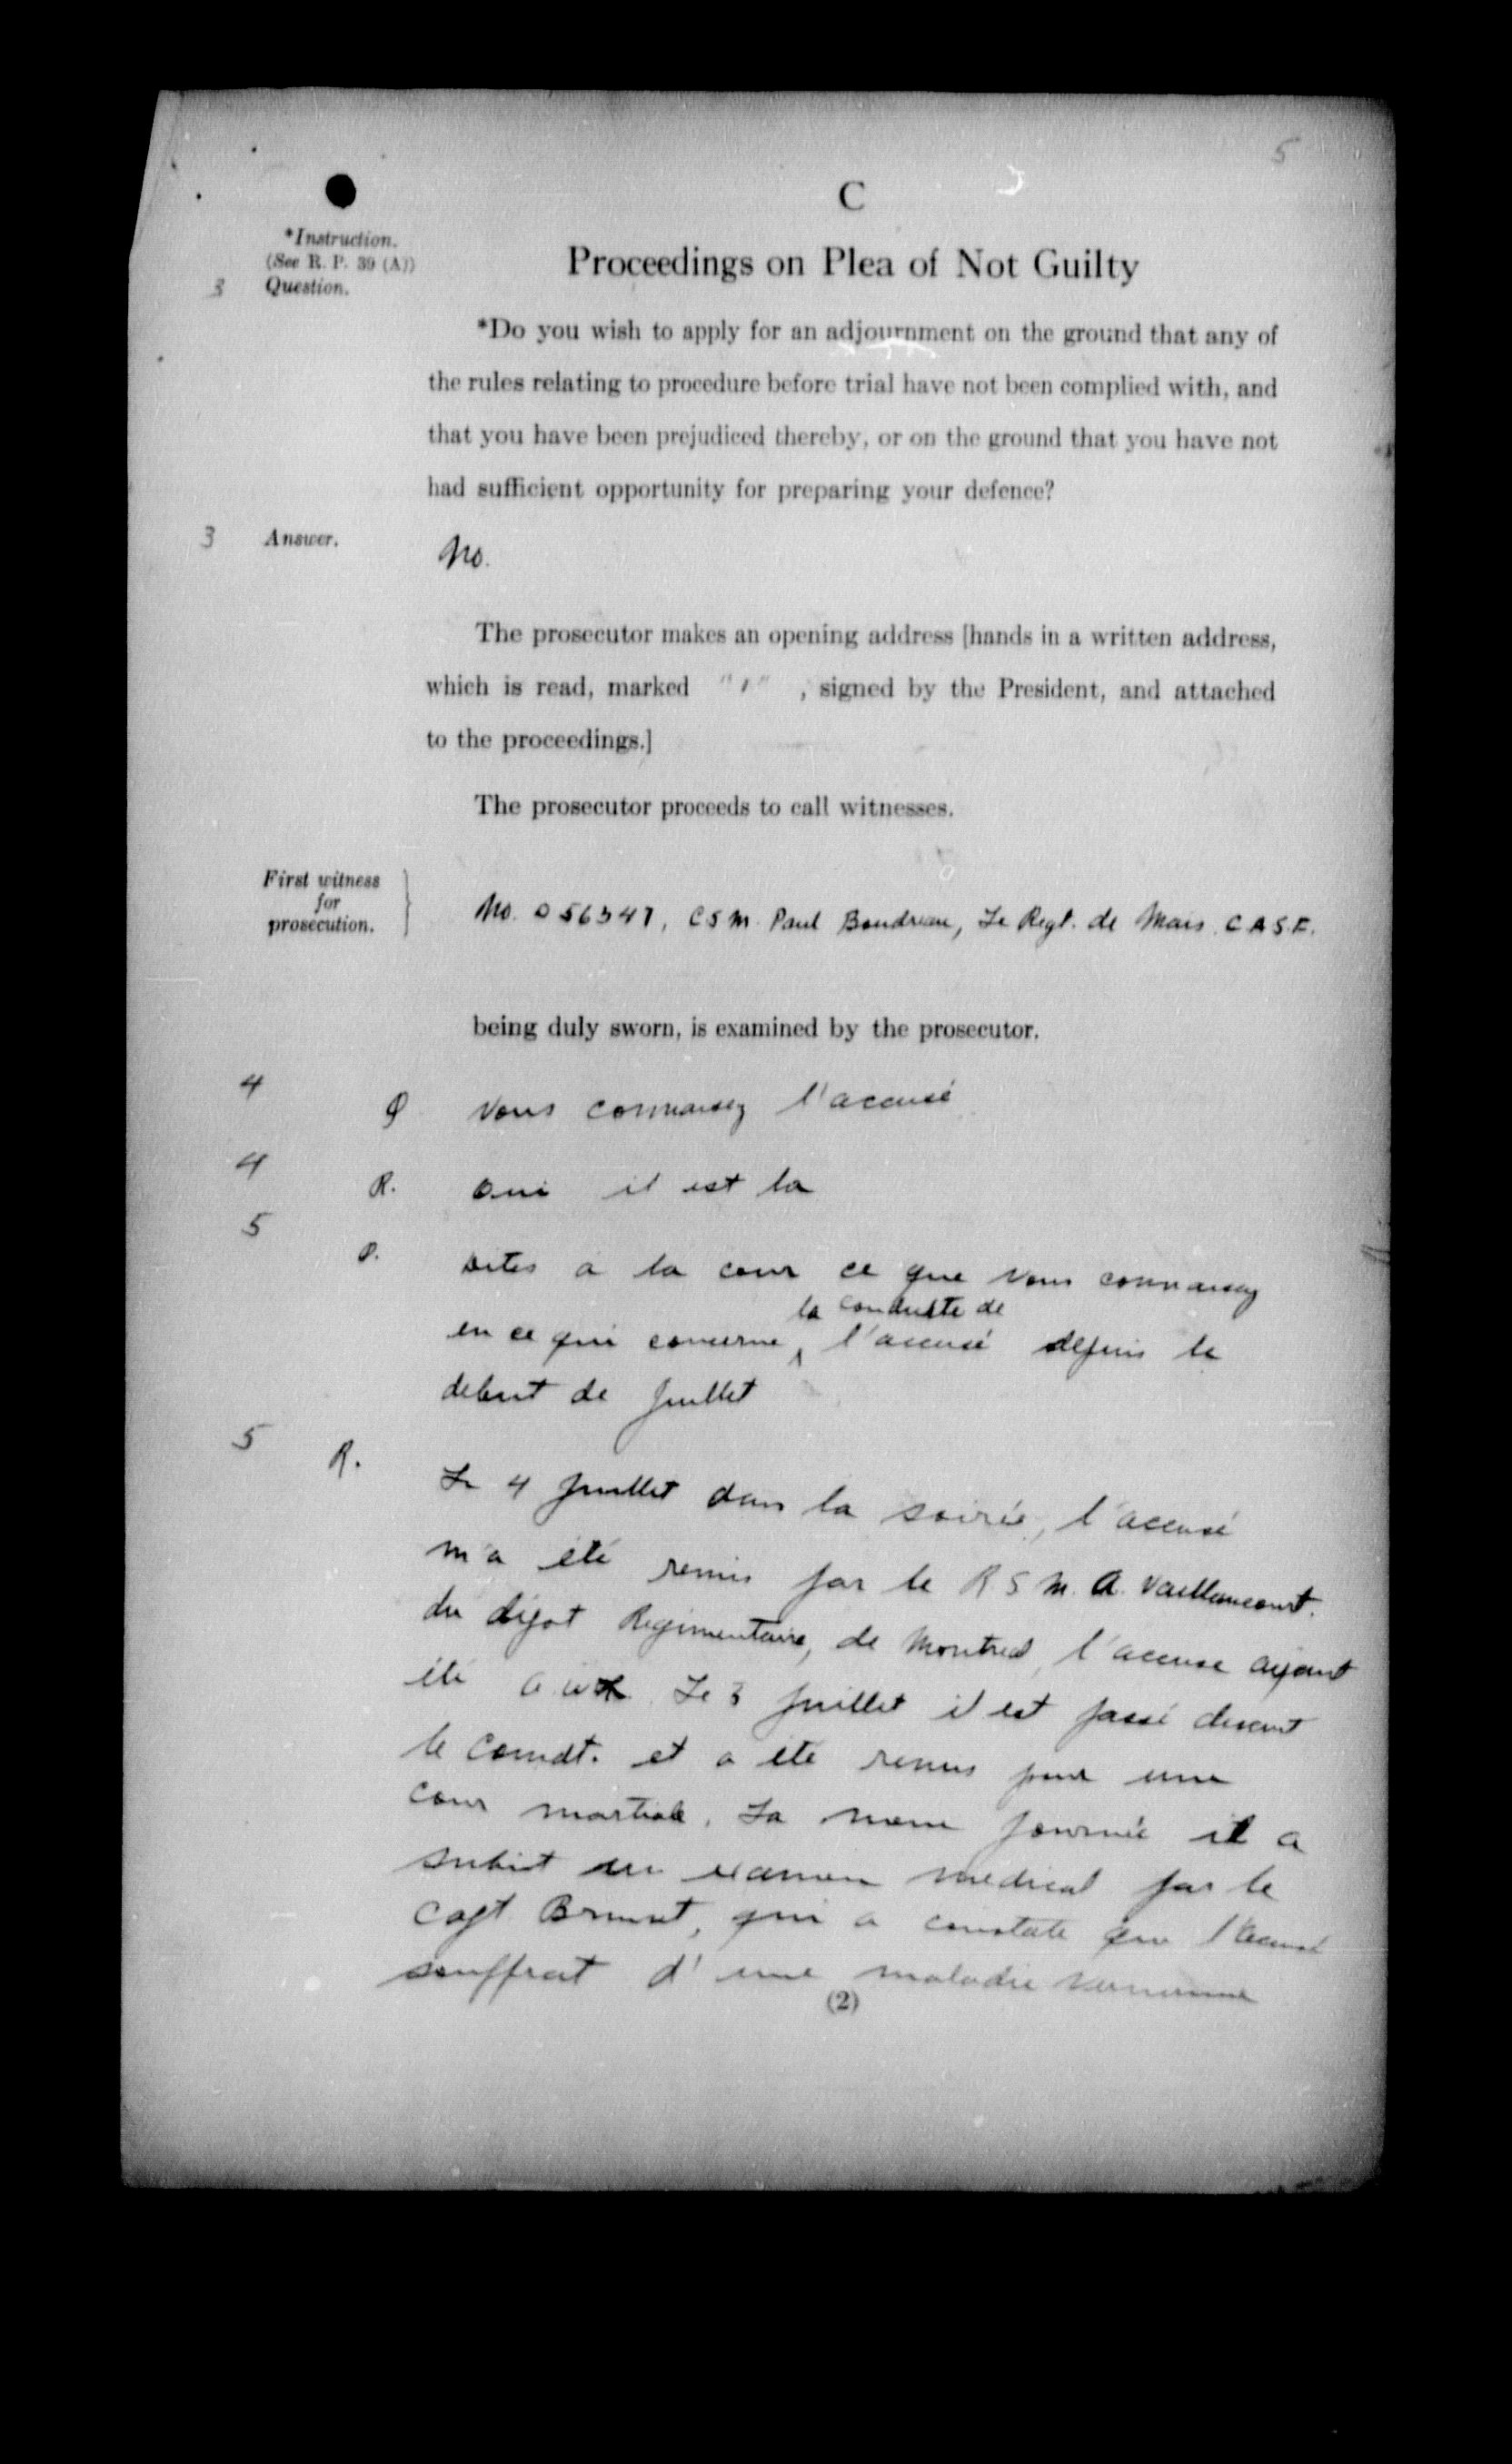 5
C
*Instruction.
(See R. P. 39 (A))
3 Question.
Proceedings on Plea of Not Guilty
*Do you wish to apply for an adjournment on the ground that any of
the rules relating to procedure before trial have not been complied with, and
that you have been prejudiced thereby, or on the ground that you have not
had sufficient opportunity for preparing your defence?
3 Answer.
No.
The prosecutor makes an opening address [hands in a written address,
which is read, marked "1" , signed by the President, and attached
to the proceedings.]
The prosecutor proceeds to call witnesses.
First witness
for
prosecution.
No. D 56347, CSM. Paul Boudreau, Le Regt. de Mais. C A S. F.
being duly sworn, is examined by the prosecutor.
4 Q Vous connaissez l'accusé
4 R. Oui il est la
5 Q. Dites a la cour ce que vous connaissez
la conduite de
en ce qui concerne l'accusé depuis le
debut de Juillet
5 R. Le 4 Juillet dans la soirée, l'accusé
m'a été remis par le R S M. A. Vaillancourt.
du dépot Regimentaire, de Montreal, l'accuse ayant
été a w l. Le 3 Juillet il est passé devant
le Comdt. et a ete remis pour une
Cour martiale. La meme journée il a
subit un examen medical par le
Capt. Brunet, qui a constate que l'accusé
souffrait d'une maladie venerienne
(2)